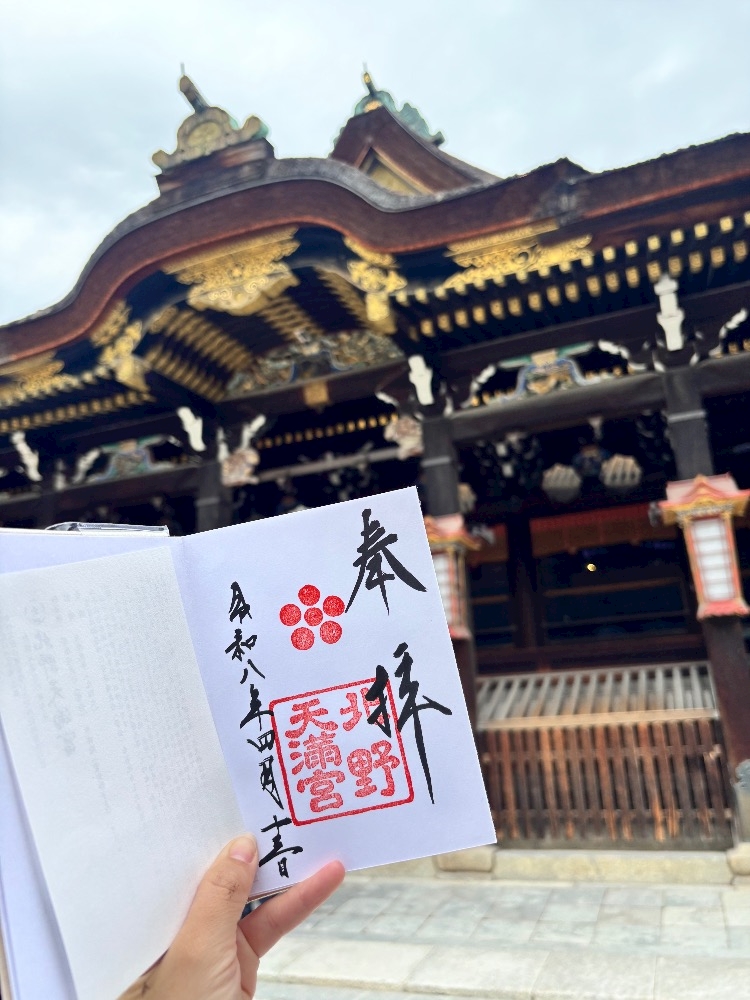 奉拝
北野
天満宮
令和八年四月十三日